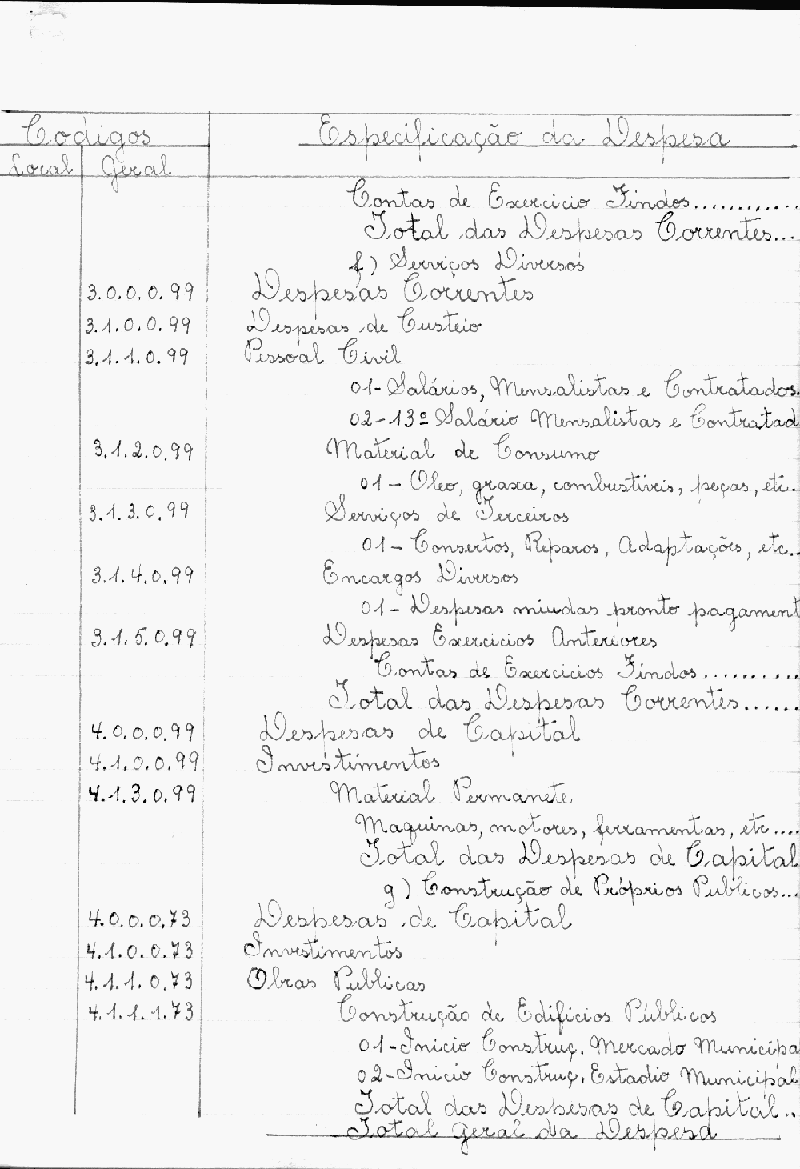 Codigos Especificação da Despesa
Local Geral
Contas de Exercicio Findos............
Total das Despesas Correntes...
f) Serviços Diversos
3.0.0.0.99 Despesas Correntes
3.1.0.0.99 Despesas de Custeio
3.1.1.0.99 Pessoal Civil
01-Salários, Mensalistas e Contratados.
02-13º Salário Mensalistas e Contratad
3.1.2.0.99 Material de Consumo
01-Oleo, graxa, combustiveis, peças, etc.
3.1.3.0.99 Serviços de Terceiros
01-Consertos, Reparos, Adaptações, etc..
3.1.4.0.99 Encargos Diversos
01-Despesas miudas pronto pagament
3.1.5.0.99 Despesas Exercicios Anteriores
Contas de Exercicios Findos..........
Total das Despesas Correntes......
4.0.0.0.99 Despesas de Capital
4.1.0.0.99 Investimentos
4.1.3.0.99 Material Permanete.
Maquinas, motores, ferramentas, etc....
Total das Despesas de Capital
g) Construção de Próprios Publicos...
4.0.0.0.73 Despesas de Capital
4.1.0.0.73 Investimentos
4.1.1.0.73 Obras Publicas
4.1.1.1.73 Construção de Edificios Públicos
01-Inicio Construç. Mercado Municipa
02-Inicio Construç. Estadio Municipal
Total das Despesas de Capital..
Total Geral da Despesa